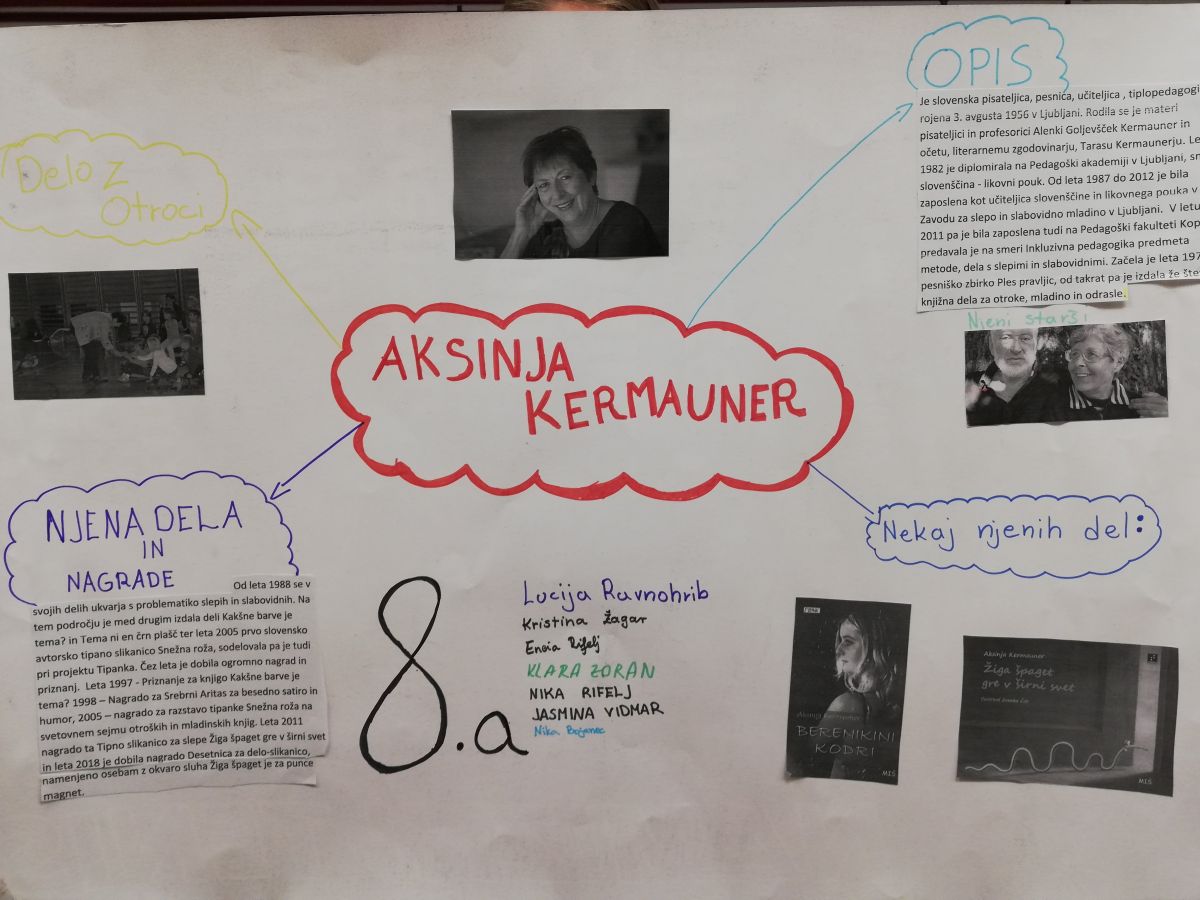 OPIS
Je slovenska pisateljica, pesnica, učiteljica , tiplopedagogi
rojena 3. avgusta 1956 v Ljubljani. Rodila se je materi
pisateljici in profesorici Alenki Goljevšček Kermauner in
očetu, literarnemu zgodovinarju, Tarasu Kermaunerju. Le
1982 je diplomirala na Pedagoški akademiji v Ljubljani, sm
slovenščina - likovni pouk. Od leta 1987 do 2012 je bila
zaposlena kot učiteljica slovenščine in likovnega pouka v
Zavodu za slepo in slabovidno mladino v Ljubljani. V letu
2011 pa je bila zaposlena tudi na Pedagoški fakulteti Kop
predavala je na smeri Inkluzivna pedagogika predmeta
metode, dela s slepimi in slabovidnimi. Začela je leta 197
pesniško zbirko Ples pravljic, od takrat pa je izdala že šte
knjižna dela za otroke, mladino in odrasle.
Njeni starši
Delo z
Otroci
AKSINJA
KERMAUNER
NJENA DELA
IN
NAGRADE
Od leta 1988 se v
svojih delih ukvarja s problematiko slepih in slabovidnih. Na
tem področju je med drugim izdala deli Kakšne barve je
tema? in Tema ni en črn plašč ter leta 2005 prvo slovensko
avtorsko tipano slikanico Snežna roža, sodelovala pa je tudi
pri projektu Tipanka. Čez leta je dobila ogromno nagrad in
priznanj. Leta 1997 - Priznanje za knjigo Kakšne barve je
tema? 1998 – Nagrado za Srebrni Aritas za besedno satiro in
humor, 2005 – nagrado za razstavo tipanke Snežna roža na
svetovnem sejmu otroških in mladinskih knjig. Leta 2011
nagrado ta Tipno slikanico za slepe Žiga špaget gre v širni svet
in leta 2018 je dobila nagrado Desetnica za delo-slikanico,
namenjeno osebam z okvaro sluha Žiga špaget je za punce
magnet.
8.a
Lucija Ravnohrib
Kristina Žagar
Rifelj
KLARA ZORAN
NIKA RIFELJ
JASMINA VIDMAR
Nika Bojanec
Nekaj njenih del:
Aksinja Kermauner
BERENIKINI
KODRI
MIŠ
Aksinja Kermauner
Žiga špaget
gre v širni svet
MIŠ